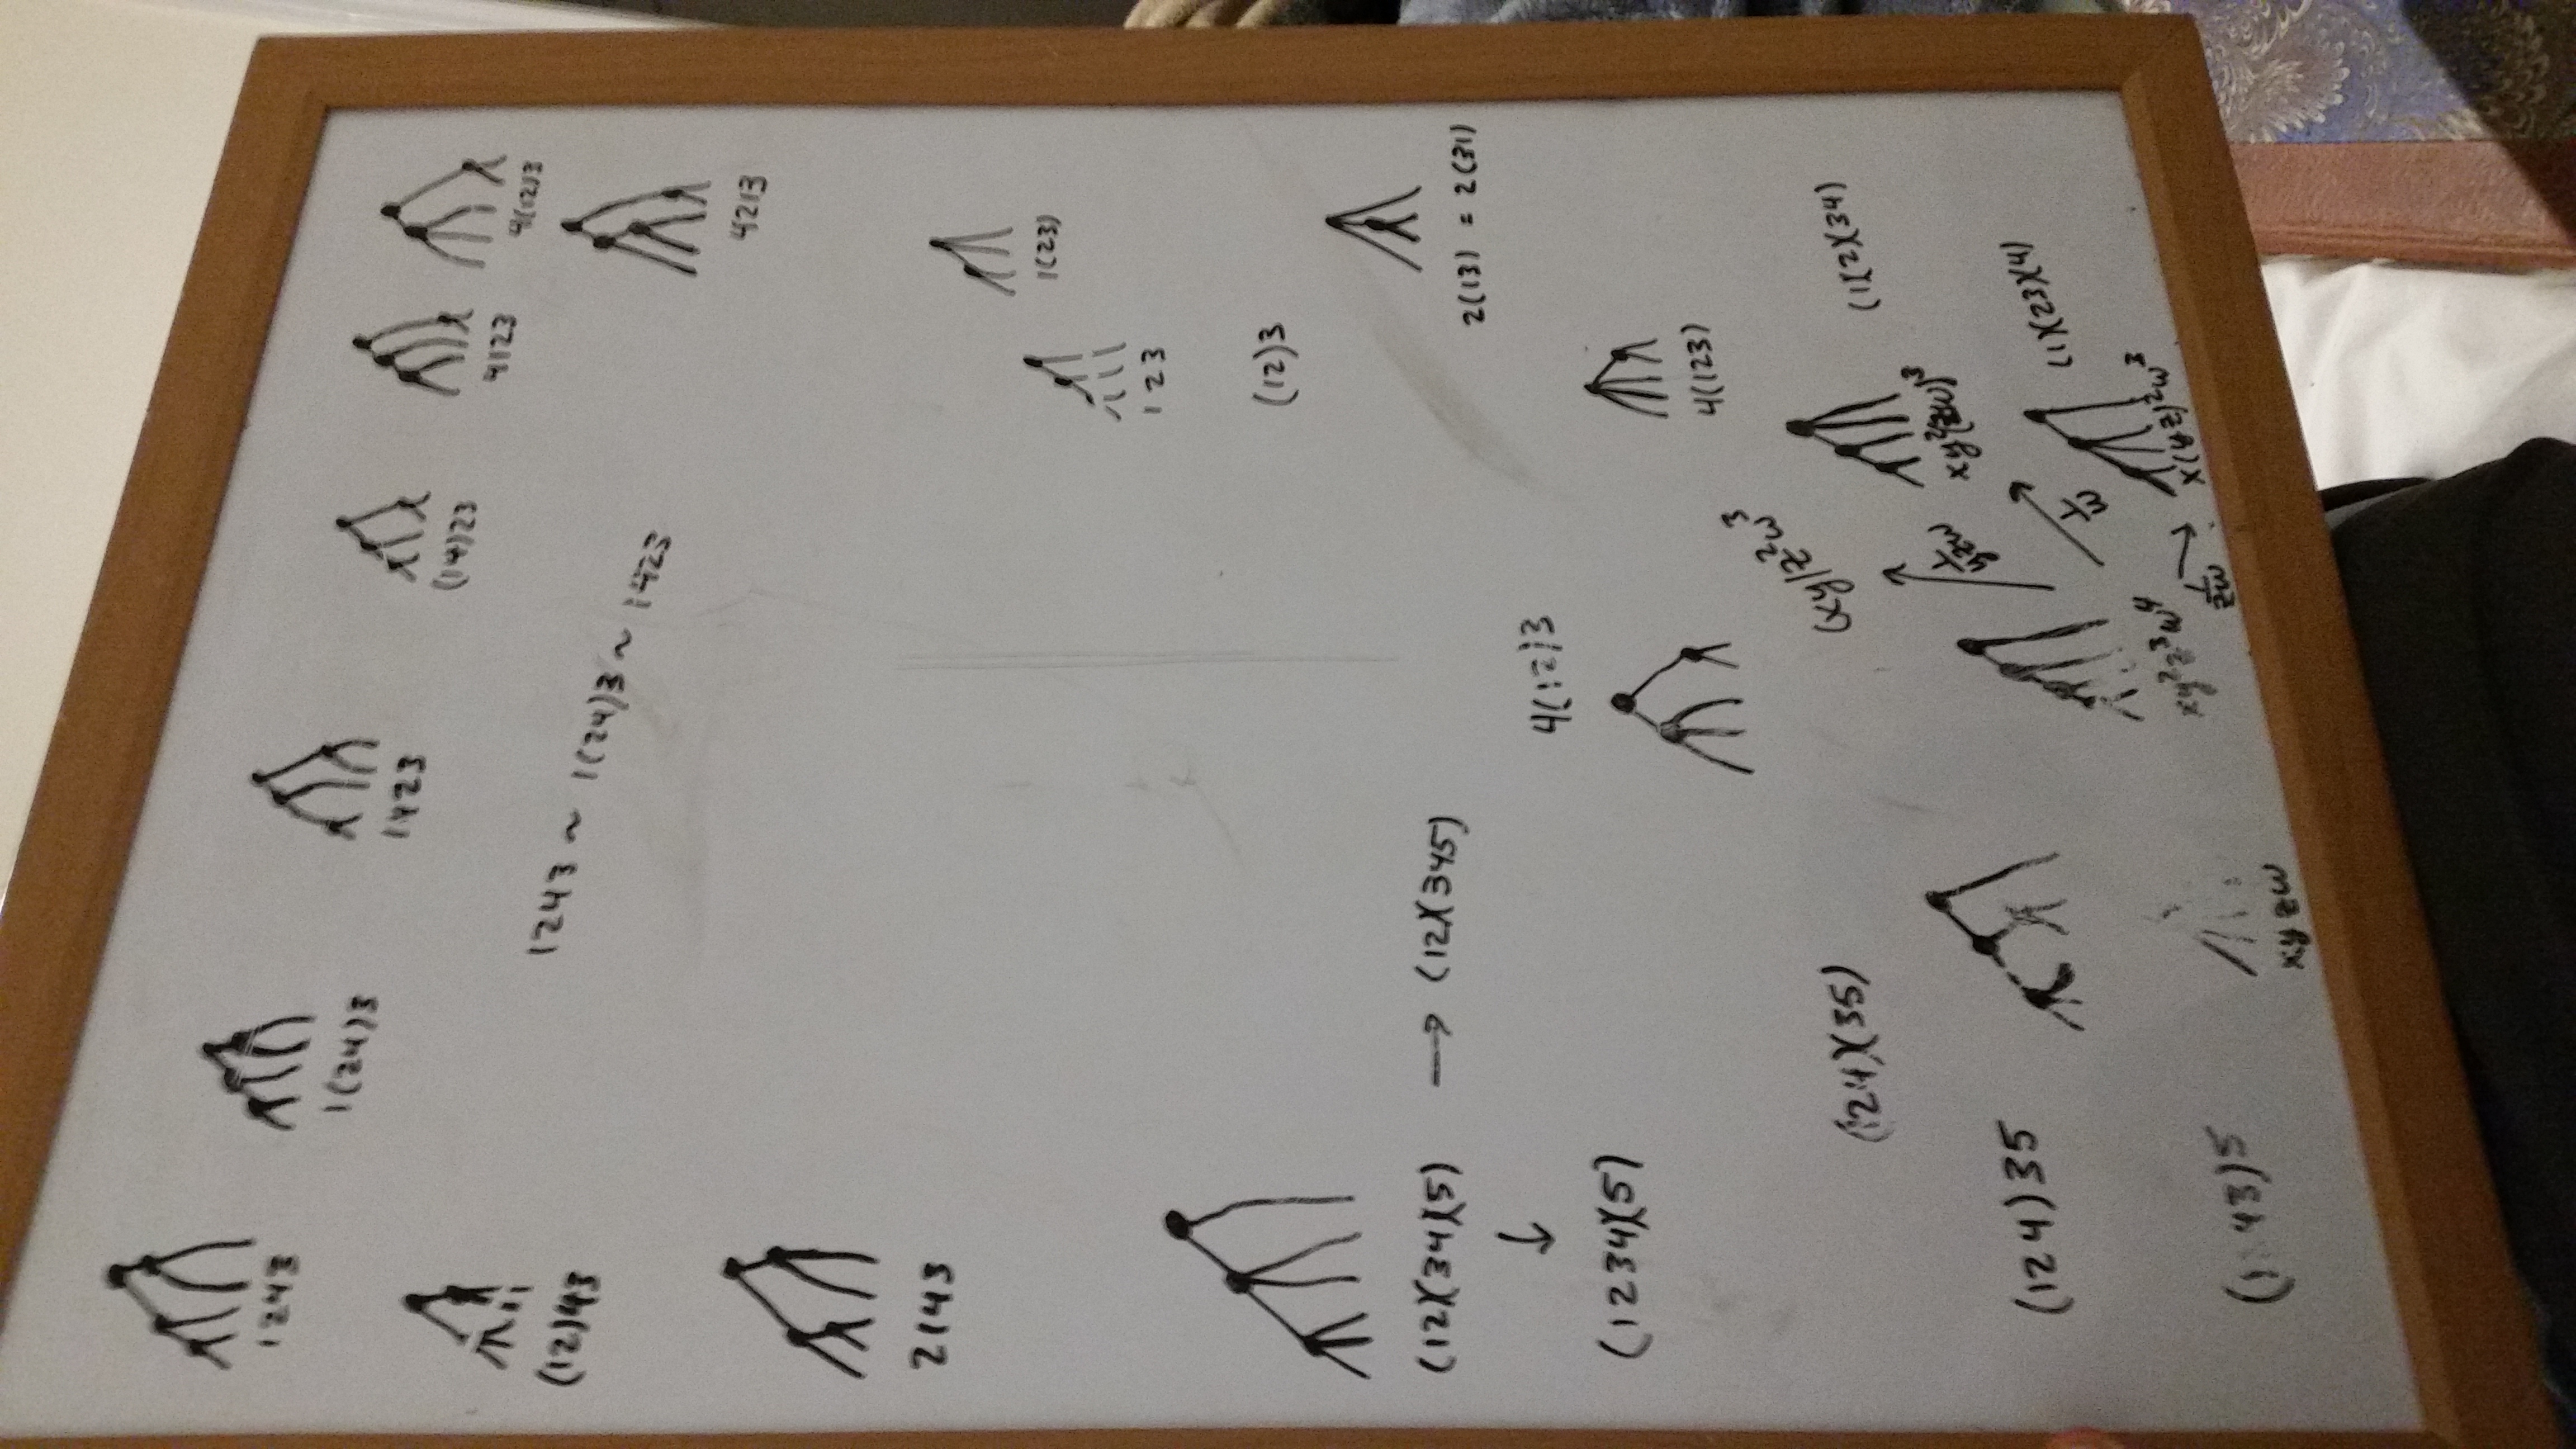 1243
1(24)3
1423
(14)23
4123
4(12)3
(12)43
1243 ~ 1(24)3 ~ 1423
4213
2143
1(23)
123
(12)3
(12)(34)(5) → (12)(345)
2(13) = 2(31)
↓
4(12)3
(1234)(5)
4(123)
(xy)z²w³
(124)(35)
(1)(2)(34)
1/yzw
xy²(zw)³
(124)35
1/w
(1)(23)(4)
xy²z³w⁴
x(yz)²w³
1/zw
43)5
xyzw